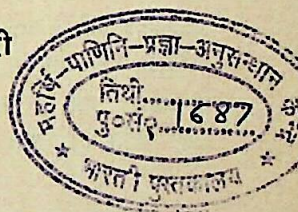 री
महर्षि-पाणिनि-प्रज्ञा-अनुसन्धान
तिथी............
पु०सं० 1687
भारती पुस्तकालय